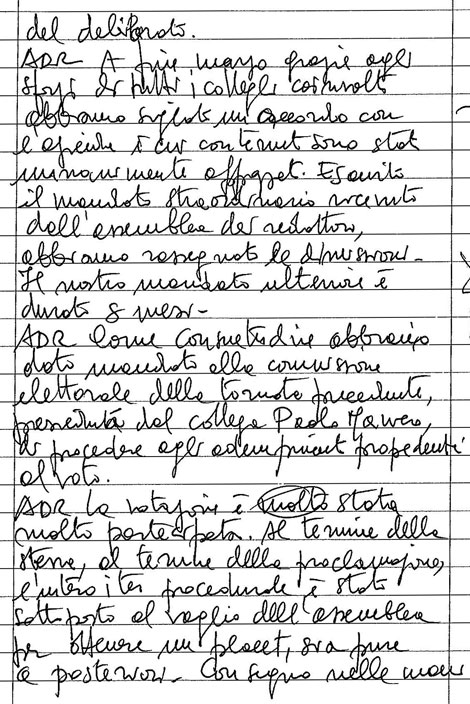 del deliberato.
ADR A fine marzo grazie agli
sforzi di tutti i colleghi coinvolti
abbiamo siglato un accordo con
l'azienda i cui contenuti sono stati
unanimemente apprezzati. Esaurito
il mandato straordinario ricevuto
dall'assemblea dei redattori,
abbiamo rassegnato le dimissioni -
Il nostro mandato ulteriore è
durato 8 mesi -
ADR Come consuetudine abbiamo
dato mandato alla commissione
elettorale della tornata precedente,
presieduta dal collega Paolo
di procedere agli adempimenti propedeutici
al voto.
ADR La votazione è molto stata
molto partecipata. Al termine della
stessa, al termine della proclamazione,
l'intero iter procedurale è stato
sottoposto al vaglio dell'assemblea
per ottenere un placet, sia pure
a posteriori - Consegno nelle mani